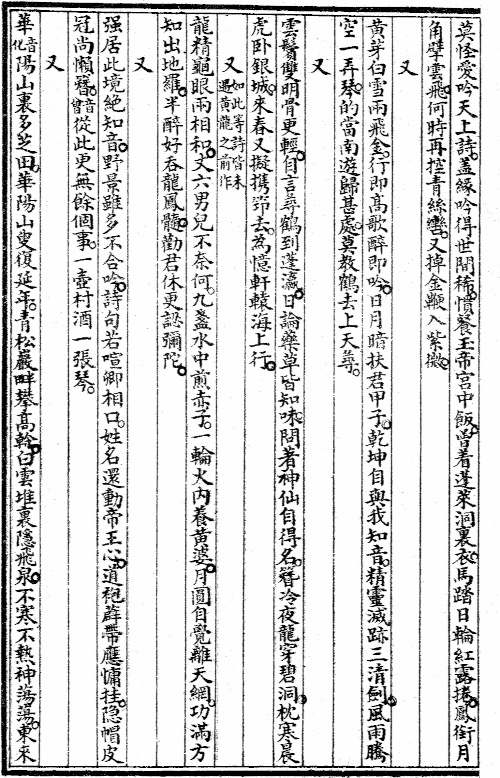 莫怪愛吟天上詩。蓋緣吟得世間稀。慣餐玉帝宮中飯。曾着蓬萊洞裏衣。馬踏日輪紅露捲。鳳銜月
角擘雲飛。何時再控青絲轡。又掉金鞭入紫微。
又
黃芽白雪兩飛金。行即高歌醉即吟。日月暗扶君甲子。乾坤自與我知音。精靈滅跡三清劍。風雨騰
空一弄琴。的當南遊歸甚處。莫教鶴去上天尋。
又
雲鬢雙明骨更輕。自言尋鶴到蓬瀛。日論藥草皆知味。問著神仙自得名。簪冷夜龍穿碧洞。枕寒晨
虎卧銀城。來春又擬携筇去。為憶軒轅海上行。
又 如此等詩皆未遇黃龍之前作
龍精龜眼兩相和。丈六男兒不奈何。九盞水中煎赤子。一輪火內養黃婆。月圓自覺離天網。功滿方
知出地羅。半醉好吞龍鳳髓。勸君休更認彌陀。
又
强居此境絶知音。野景雖多不合吟。詩句若喧卿相口。姓名還動帝王心。道袍薜帶應慵挂。隐帽皮
冠尚懶簪。音昝從此更無餘個事。一壺村酒一張琴。
又
華音化陽山裏多芝田。華陽山叟復延年。青松巖畔攀高幹。白雲堆裏隱飛泉。不寒不熱神蕩蕩。東來